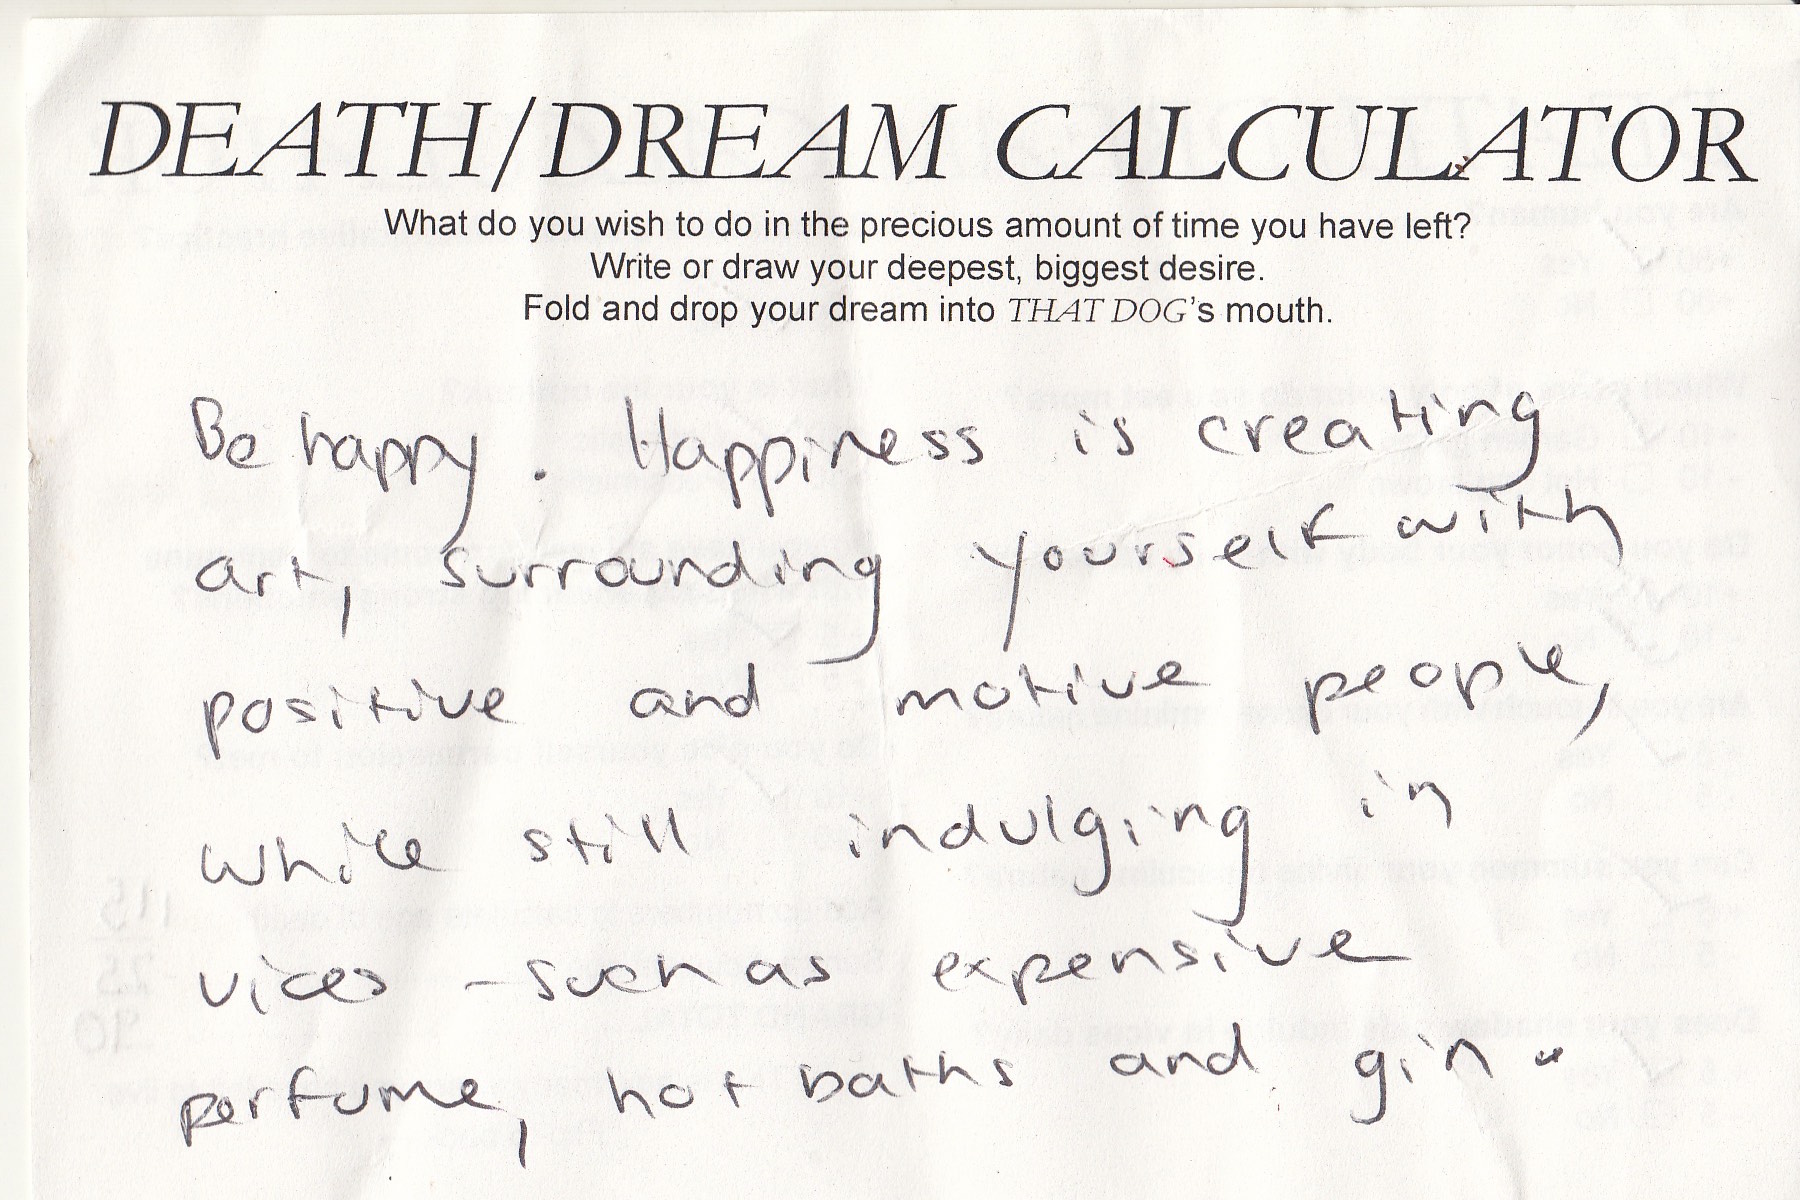 DEATH/DREAM CALCULATOR
What do you wish to do in the precious amount of time you have left?
Write or draw your deepest, biggest desire.
Fold and drop your dream into THAT DOG's mouth.
Be happy. Happiness is creating
art, surrounding yourself with
positive and motive people,
while still indulging in
vices - such as expensive
perfume, hot baths and gin.